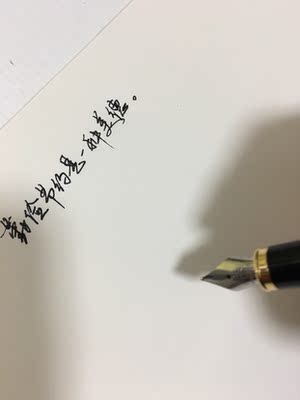 勤俭节约是一种美德。